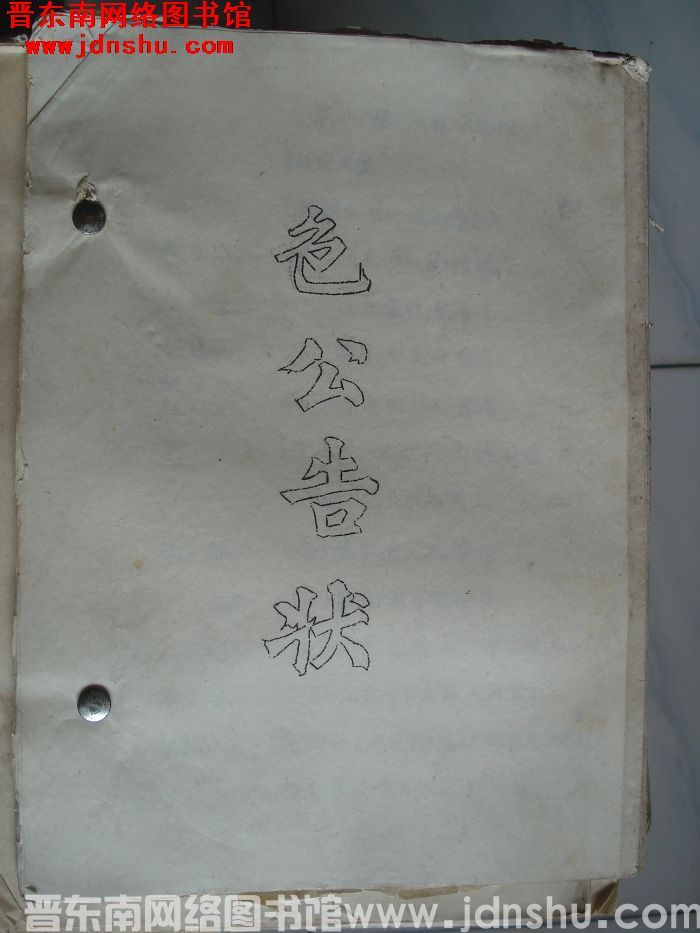 晋东南网络图书馆
www.jdnshu.com
色公告状
晋东南网络图书馆www.jdnshu.com